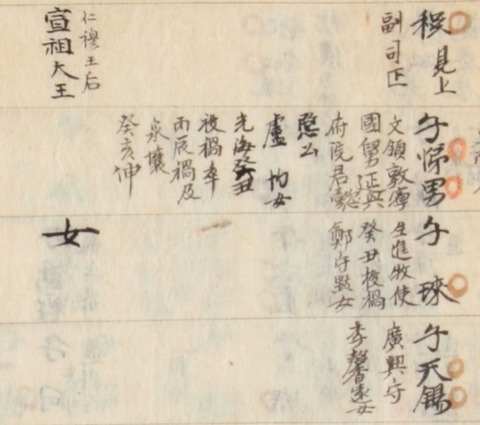 祦 見上
副司正
仁穆王后
宣祖大王
子悌男
文領敦寧
國舅延興
府院君懿
愍公
盧垧女
光海癸丑
被禍卒
丙辰禍及
泉壤
癸亥伸
子琜
生進牧使
癸丑被禍
女
子天錫
廣興守
李馨遠女